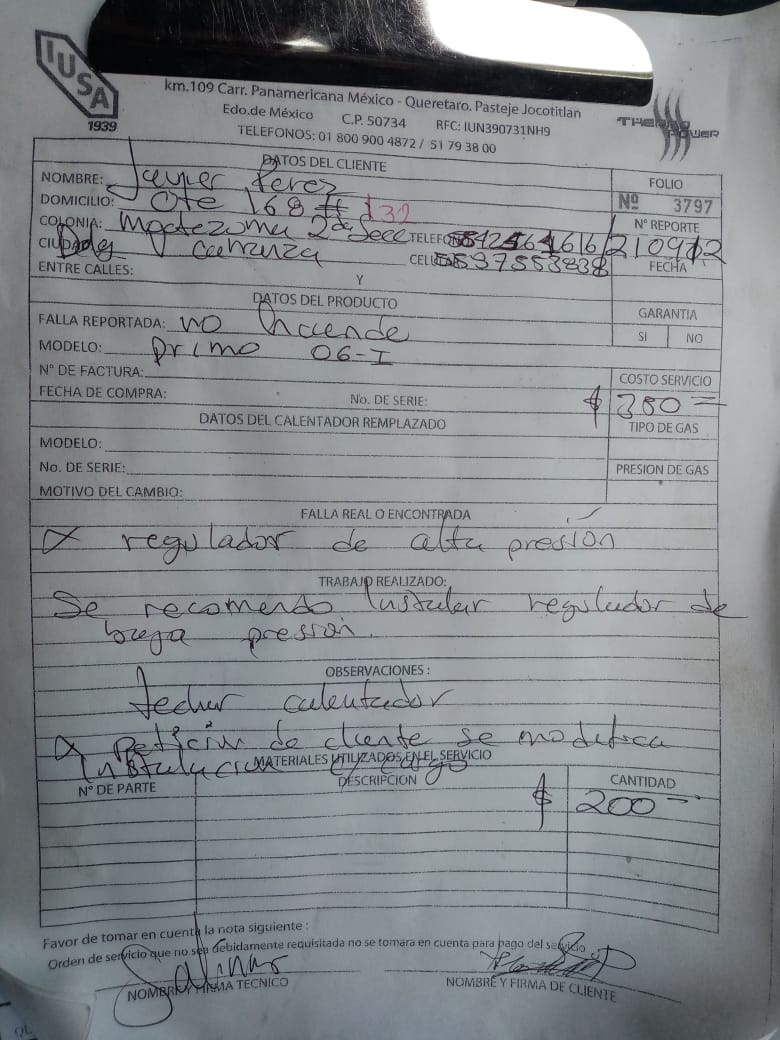 IUSA
1939
km.109 Carr. Panamericana México - Queretaro. Pasteje Jocotitlan
Edo.de México C.P. 50734 RFC: IUN390731NH9
TELEFONOS: 01 800 900 4872 / 51 79 38 00
THERMO POWER
DATOS DEL CLIENTE
NOMBRE: Javier Perez
FOLIO
Nº 3797
DOMICILIO: Ote 168 # 132
Nº REPORTE
COLONIA: Moctezuma 2da Secc TELEFONO:
CIUDAD: Carranza CELULAR:
FECHA
ENTRE CALLES: Y
DATOS DEL PRODUCTO
GARANTIA
FALLA REPORTADA: no Enciende
SI NO
MODELO: primo 06-I
N° DE FACTURA:
COSTO SERVICIO
FECHA DE COMPRA: No. DE SERIE:
$ 380
DATOS DEL CALENTADOR REMPLAZADO
TIPO DE GAS
MODELO:
No. DE SERIE:
PRESION DE GAS
MOTIVO DEL CAMBIO:
FALLA REAL O ENCONTRADA
regulador de alta presión
TRABAJO REALIZADO:
Se recomendo Instalar regulador de
baja presion.
OBSERVACIONES :
techar calentador
petición de cliente se modifica
Instalacion
MATERIALES UTILIZADOS EN EL SERVICIO
N° DE PARTE DESCRIPCION CANTIDAD
$ 200
Favor de tomar en cuenta la nota siguiente :
Orden de servicio que no sea debidamente requisitada no se tomara en cuenta para pago del servicio
Salinas
NOMBRE Y FIRMA TECNICO
NOMBRE Y FIRMA DE CLIENTE